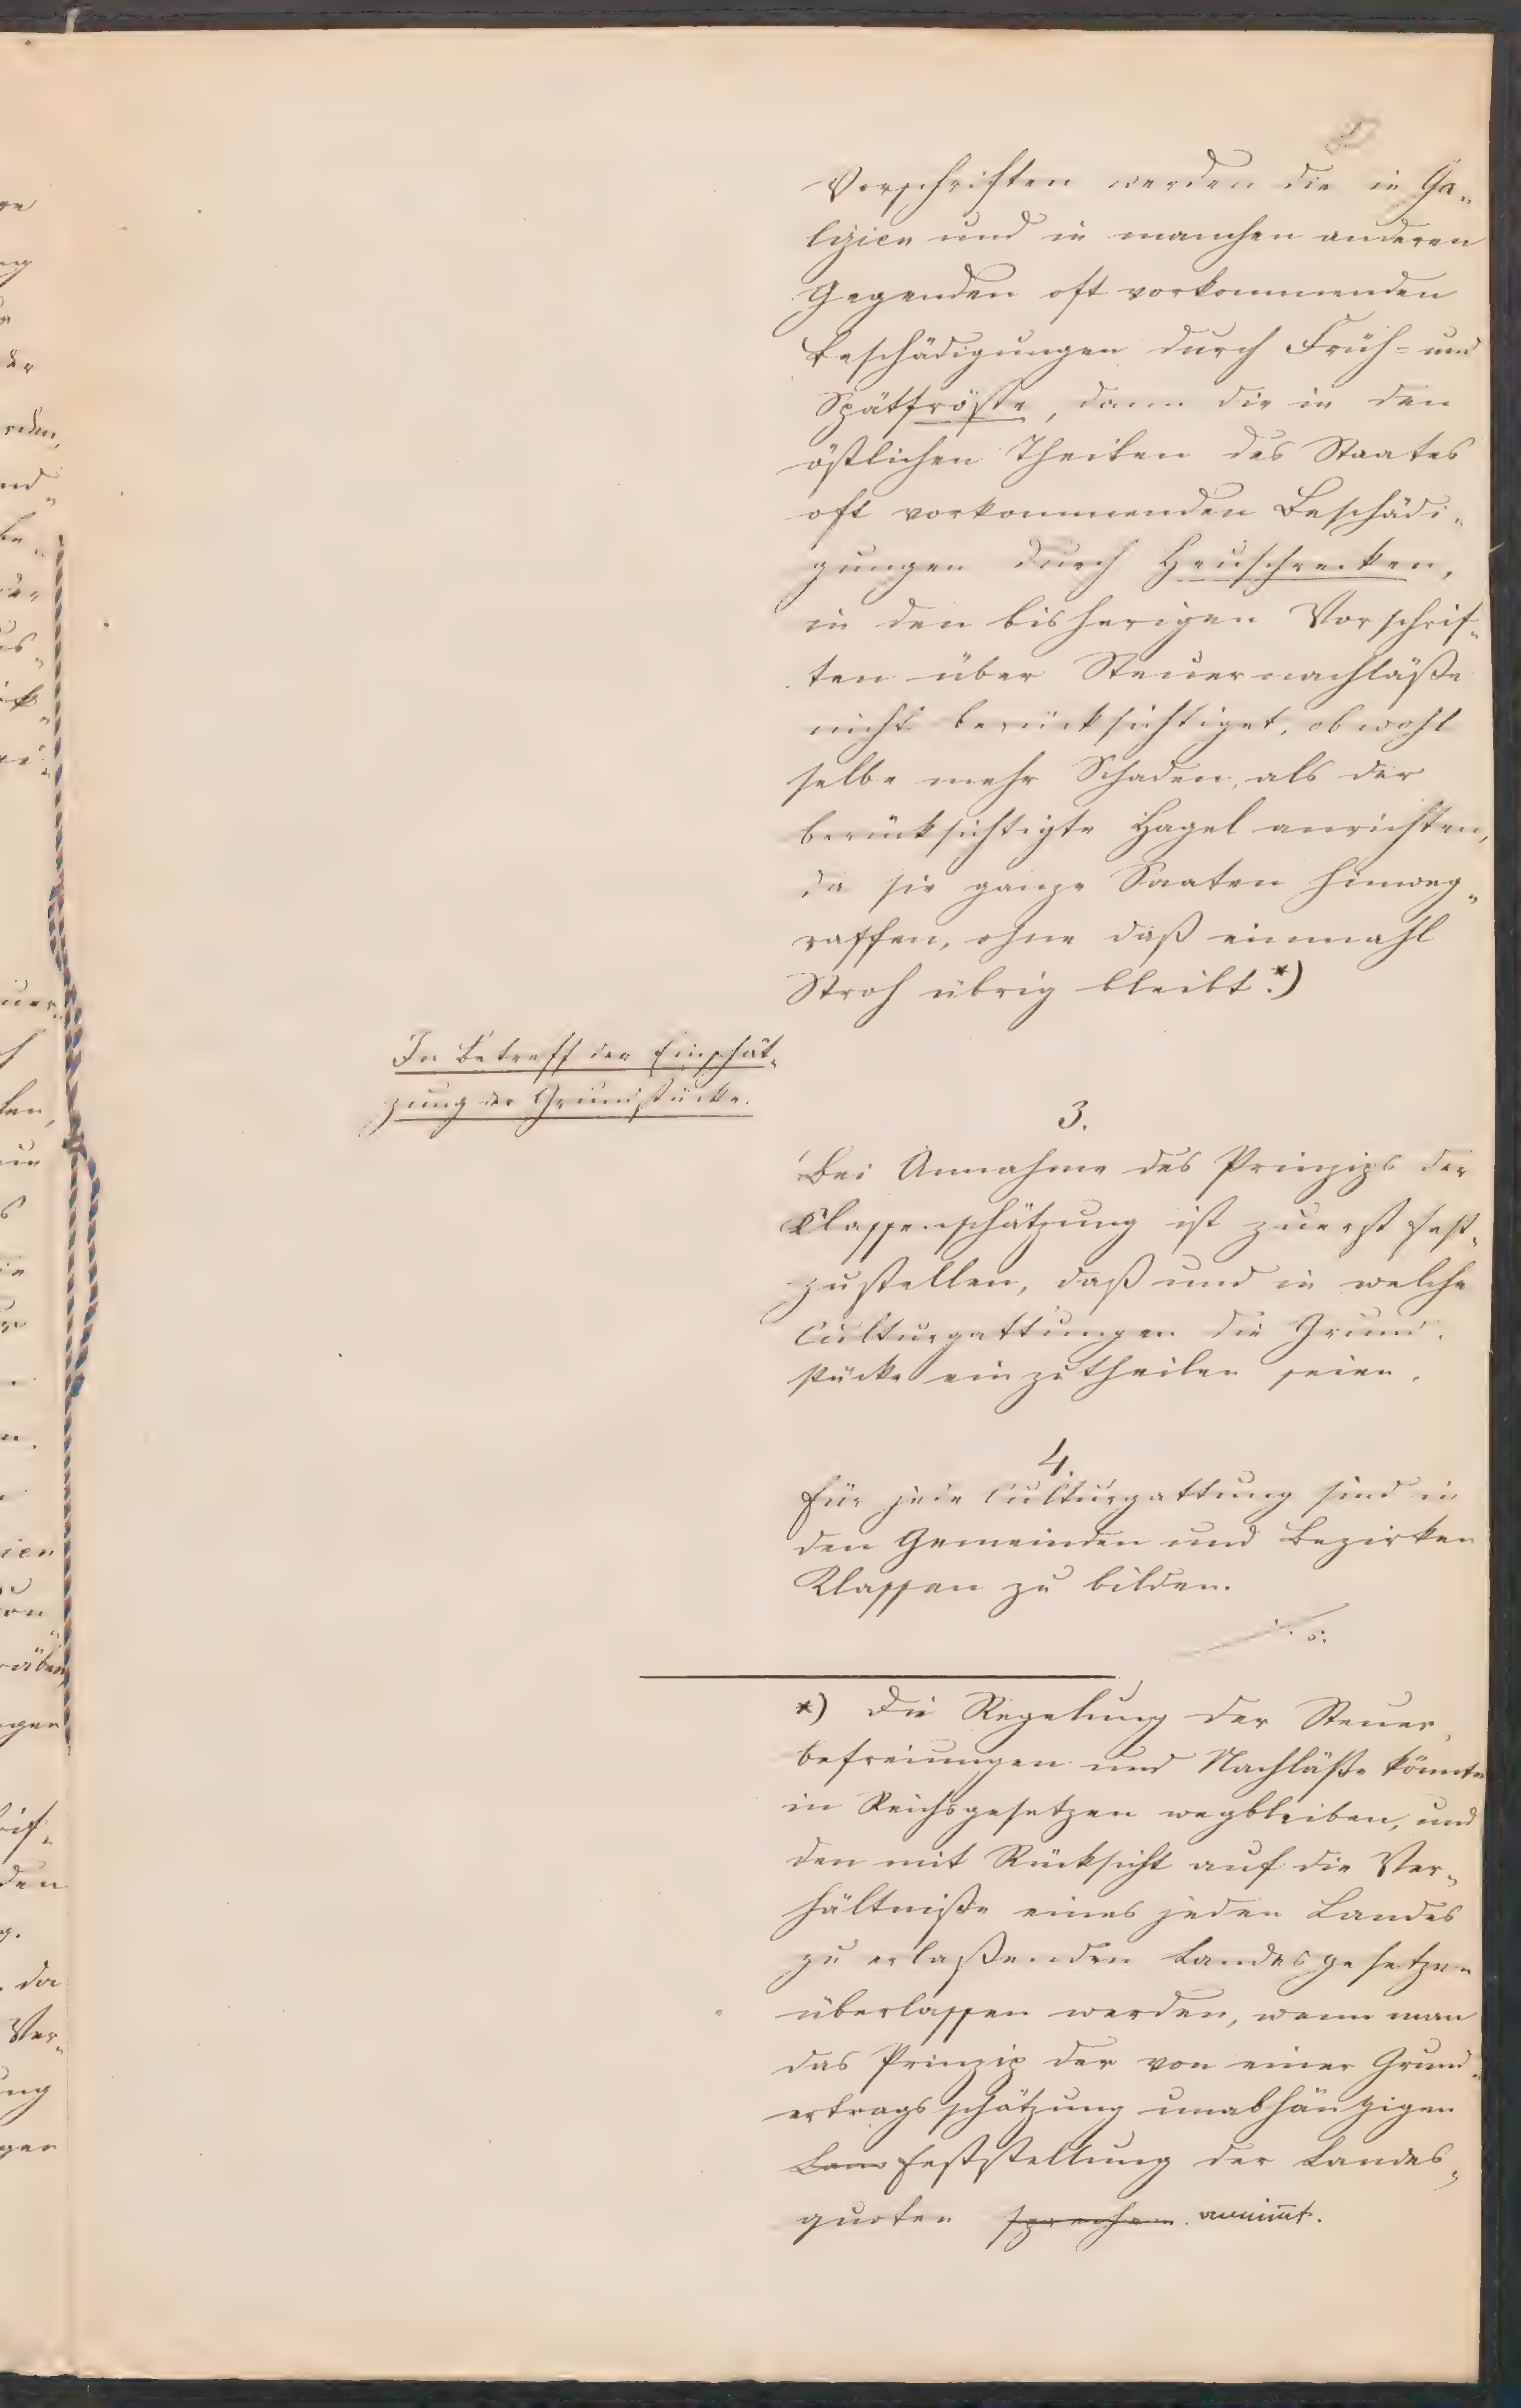 Vorschriften werden die in Ga-
lizien und in manchen anderen
Gegenden oft vorkommenden
Beschädigungen durch Früh- und
Spätfröste, dann die in den
östlichen Theilen des Staates
oft vorkommenden Beschädi-
gungen durch Heuschrecken,
in den bisherigen Vorschrif-
ten über Steuernachläße
nicht berücksichtiget, obwohl
selbe mehr Schaden, als der
berücksichtigte Hagel anrichten,
da sie ganze Saaten hinweg-
raffen, ohne daß einmahl
Stroh übrig bleibt.*)
In Betreff der Einschät-
zung der Grundstücke.
3.
Bei Annahme des Prinzips der
Klassenschätzung ist zuerst fest-
zustellen, daß und in welche
Culturgattungen die Grund-
stücke einzutheilen seien.
4.
Für jede Culturgattung sind in
den Gemeinden und Bezirken
Klassen zu bilden.
*) Die Regelung der Steuer-
befreiungen und Nachläße könnte
in Reichsgesetzen wegbleiben, und
den mit Rücksicht auf die Ver-
hältniße eines jeden Landes
zu erlaßenden Landesgesetzen
überlassen werden, wenn man
das Prinzip der von einer Grund-
ertragsschätzung unabhängigen
Lan Feststellung der Landes-
quoten sprechen annimt.